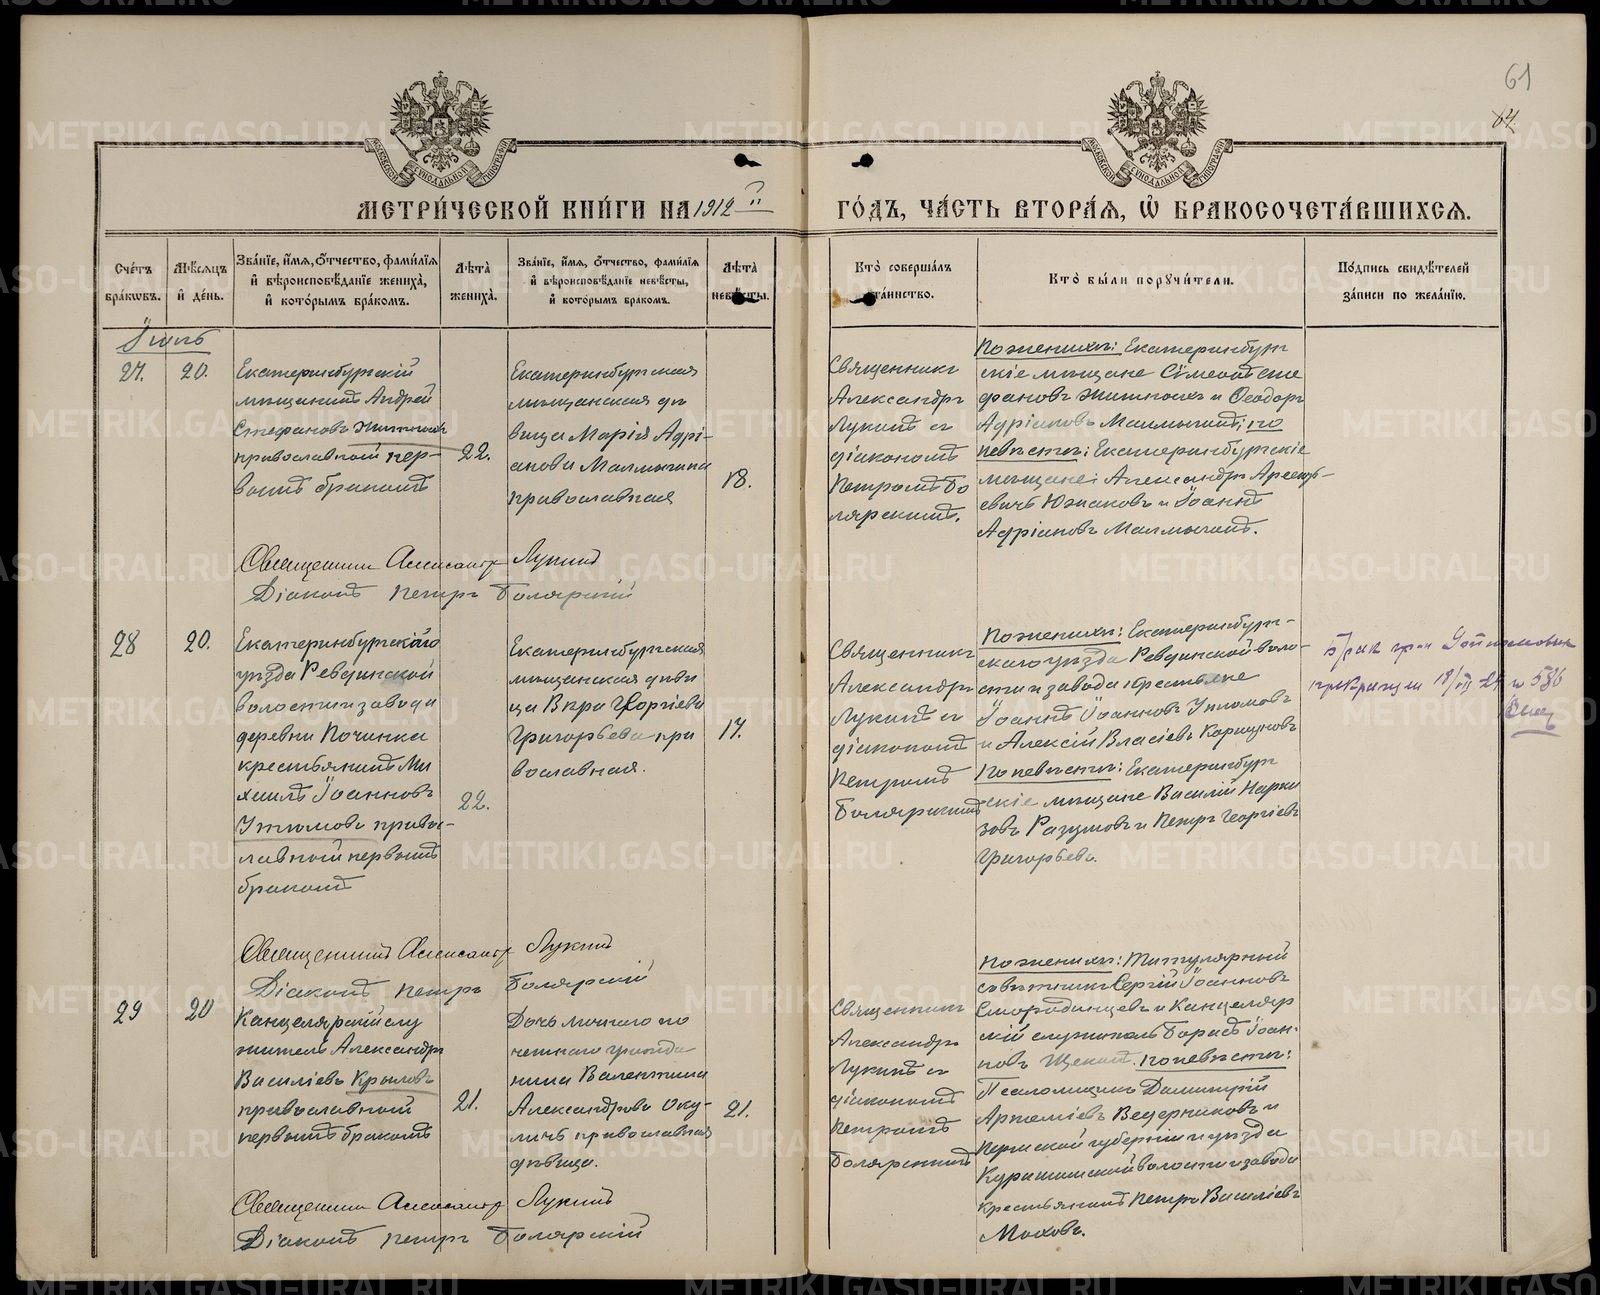 61
64.
МЕТРИ́ЧЕСКОЙ КНИ́ГИ НА 1912 ГО́ДЪ, ЧА́СТЬ ВТОРА́Я, Ѡ БРАКОСОЧЕТА́ВШИХСЯ.
Сче́тъ бра́кѡвъ.
Мѣ́сяцъ и́ де́нь.
Зва́нїе, и́мя, ѻ́тчество, фами́лїя и́ вѣроисповѣ́данїе жениха̀, и́ кото́рымъ бра́комъ.
Лѣ́та̀ жениха̀.
Зва́нїе, и́мя, ѻ́тчество, фами́лїя и́ вѣроисповѣ́данїе невѣ́сты, и́ кото́рымъ бракомъ.
Лѣ́та̀ невѣ́сты.
Кто̀ соверша́лъ та́инство.
Кто̀ бы́ли порꙋчи́тели.
По́дпись свидѣ́телей за́писи по жела́нїю.
27.
20.
Екатеринбургскій
мѣщанинъ Андрей
Стефановъ
православный пер-
вымъ бракомъ
22.
Екатеринбургская
мѣщанская дѣ
вица Марія Адрі-
анова Малмыгина
православная
18.
Священникъ
Александръ
Лукинъ съ
діакономъ
Петромъ Бо
лярскимъ.
По женихѣ: Екатеринбург
скіе мѣщане Симеонъ Сте
фановъ и Ѳеодоръ
Адріановъ Малмыгинъ; по
невѣстѣ: Екатеринбургскіе
мѣщане: Александръ Арсень-
евичъ Южаковъ и Іоаннъ
Адріановъ Малмыгинъ.
Священникъ Александръ Лукинъ
Діаконъ Петръ Болярскій
28
20.
Екатеринбургскаго
уѣзда Ревдинской
волости и завода
деревни Починка
крестьянинъ Ми
хаилъ Іоанновъ
Утюмовъ правос-
лавный первымъ
бракомъ
22.
Екатеринбургская
мѣщанская дѣви
ца Вѣра Георгіева
Григорьева пра
вославная.
17.
Священникъ
Александръ
Лукинъ съ
діакономъ
Петромъ
Болярскимъ
По женихѣ: Екатеринбург-
скаго уѣзда Ревдинской воло-
сти и завода крестьяне
Іоаннъ Іоанновъ Утюмовъ
и Алексій Власіевъ Коршуновъ
По невѣстѣ: Екатеринбург
скіе мѣщане Василій Нарки
зовъ Разумовъ и Петръ Георгіевъ
Григорьевъ.
Брак гр-н
прекращен 18/VII 24 № 586
Священникъ Александръ Лукинъ
Діаконъ Петръ Болярскій
29
20
Канцелярскій слу
житель Александръ
Василіевъ Крыловъ
православный
первымъ бракомъ
21.
Дочь личнаго по
четнаго гражда
нина Валентина
Александрова Оку-
личъ православная
дѣвица.
21.
Священникъ
Александръ
Лукинъ съ
діакономъ
Петромъ
Болярскимъ
По женихѣ: Титулярный
совѣтникъ Сергій Іоанновъ
Смородинцевъ и Канцеляр
скій служитель Борисъ Іоан-
новъ. По невѣстѣ:
Псаломщикъ Димитрій
Артеміевъ Ведерниковъ и
Пермской губерніи и уѣзда
Курашимской волости и завода
крестьянинъ Петръ Василіевъ
Моховъ.
Священникъ Александръ Лукинъ
Діаконъ Петръ Болярскій
METRIKI.GASO-URAL.RU